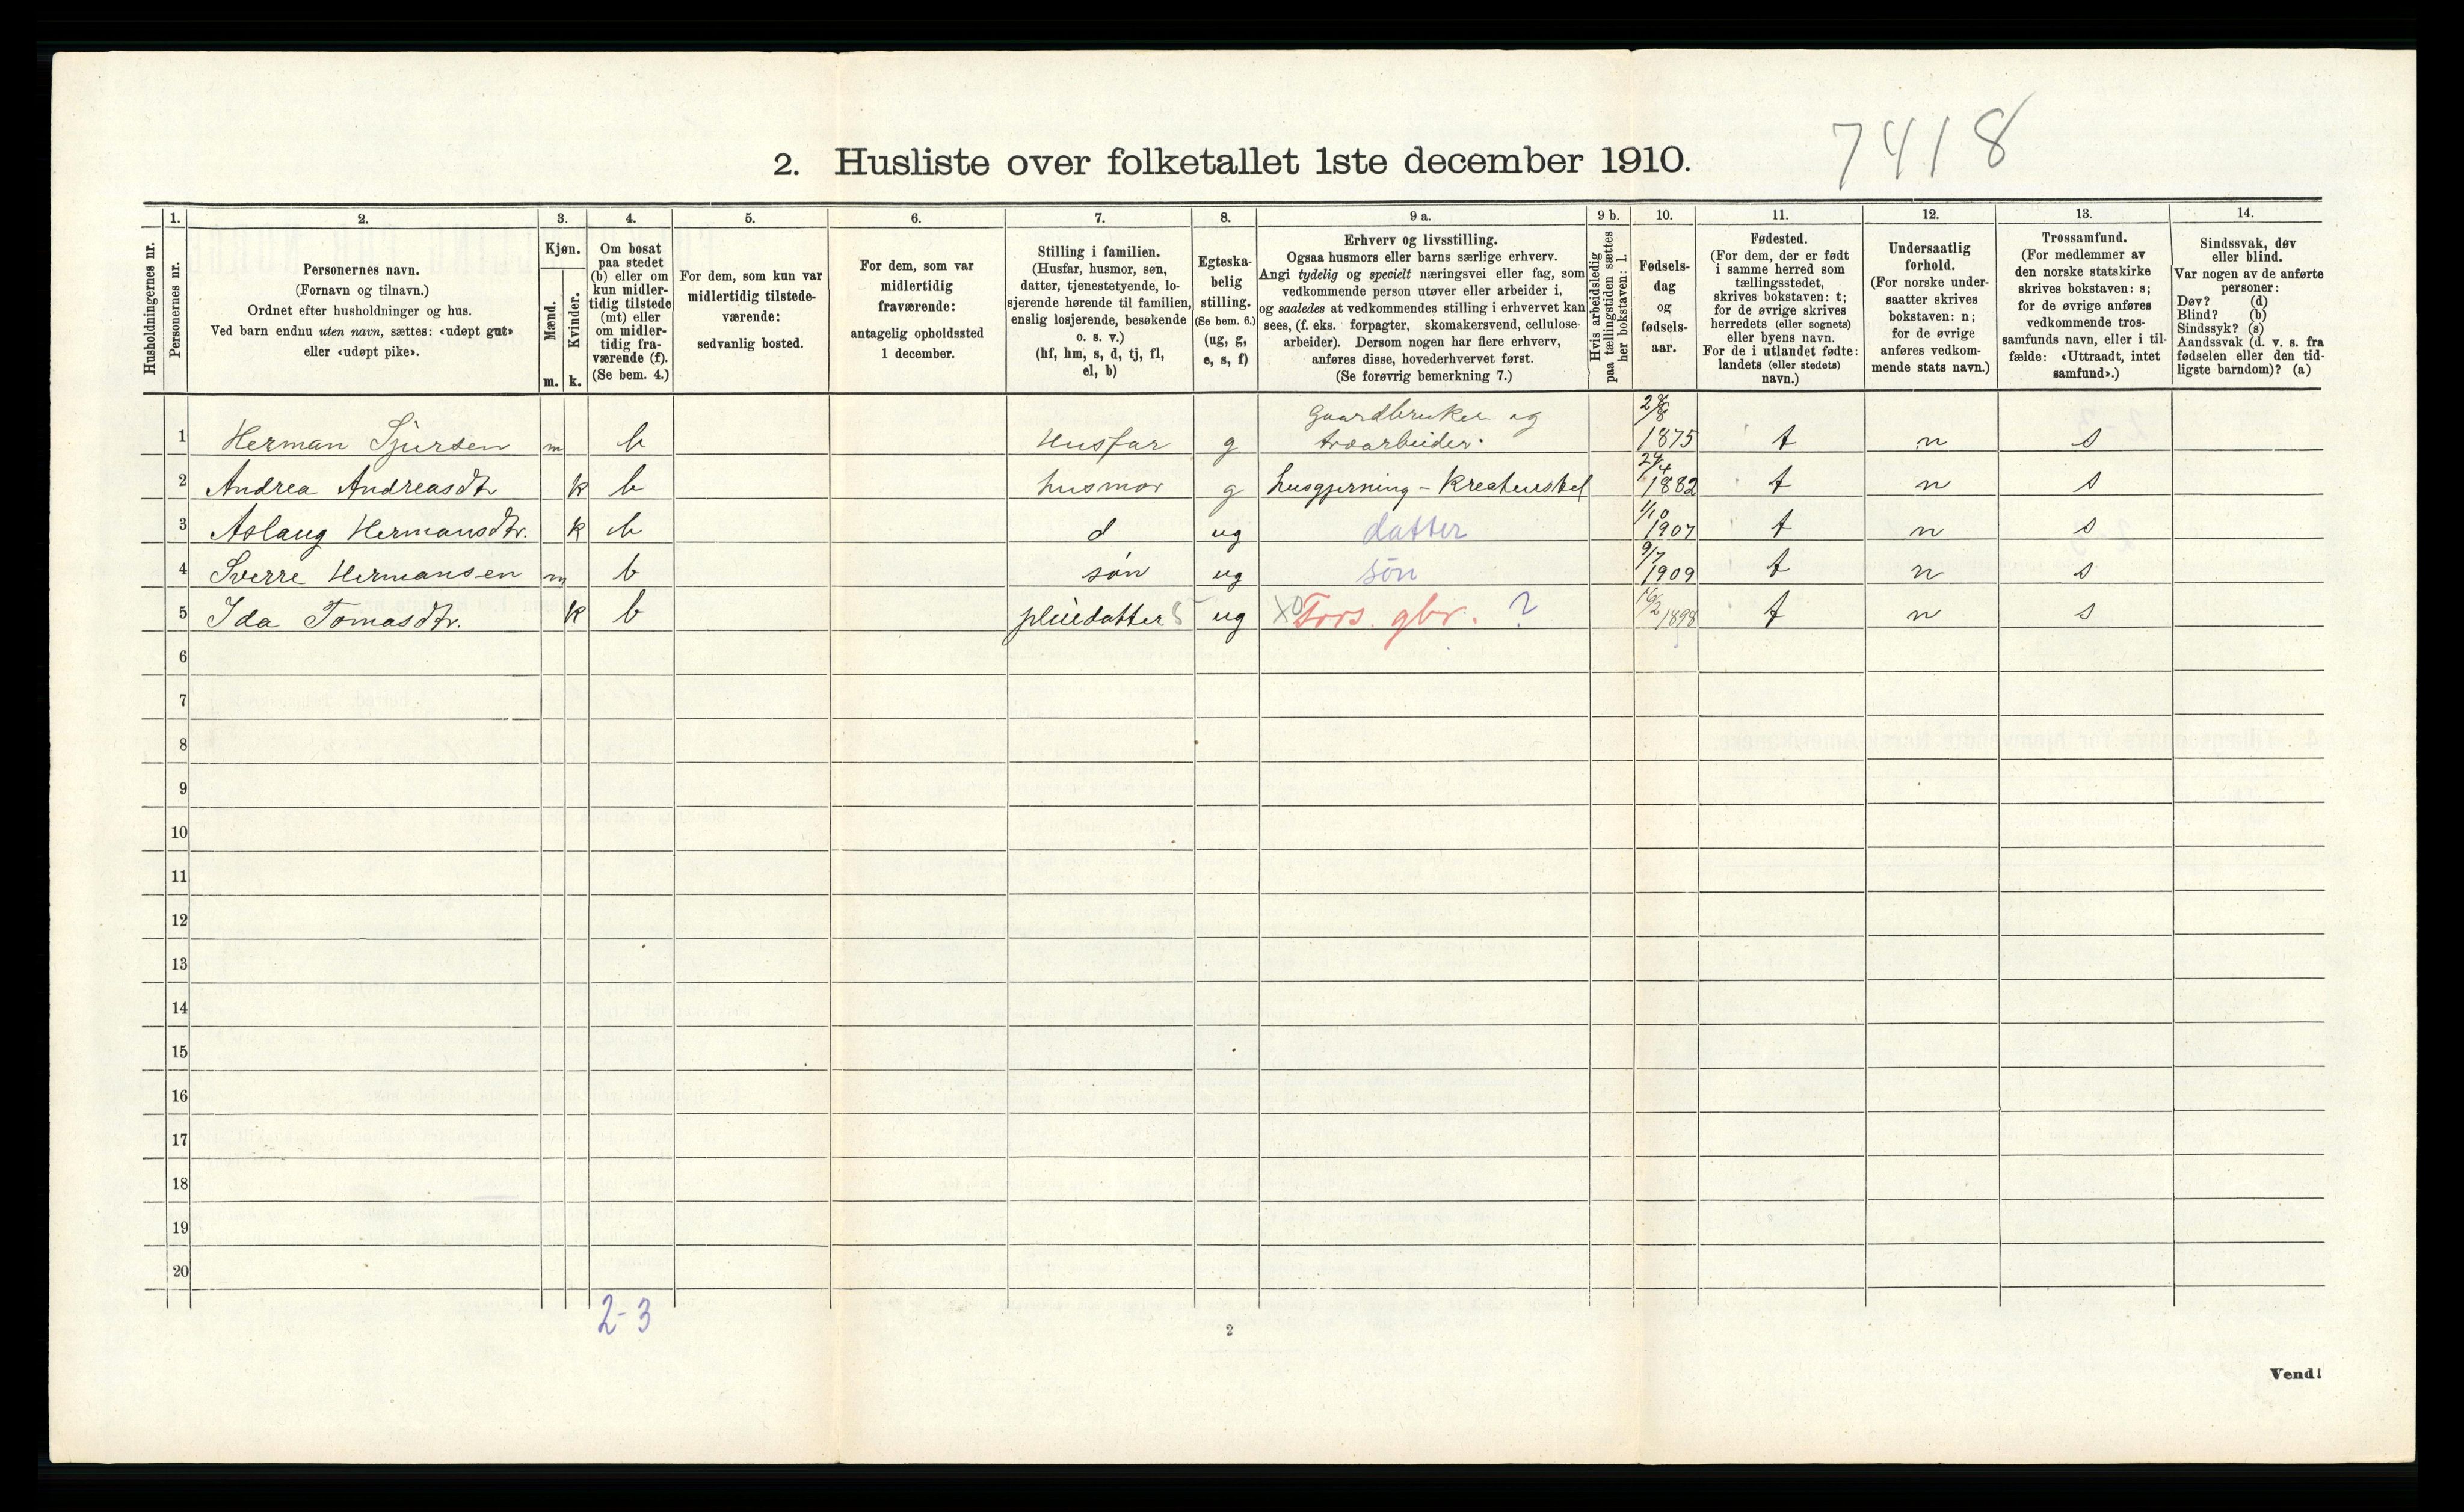 7418
2. Husliste over folketallet 1ste december 1910.
Husholdningernes nr.
1.
Personernes nr.
2.
Personernes navn.
(Fornavn og tilnavn.)
Ordnet efter husholdninger og hus.
Ved barn endnu uten navn, sættes: «udøpt gut»
eller «udøpt pike».
3.
Kjøn.
Mænd.
m.
Kvinder.
k.
4.
Om bosat
paa stedet
(b) eller om
kun midler-
tidig tilstede
(mt) eller
om midler-
tidig fra-
værende (f).
(Se bem. 4.)
5.
For dem, som kun var
midlertidig tilstede-
værende:
sedvanlig bosted.
6.
For dem, som var
midlertidig
fraværende:
antagelig opholdssted
1 december.
7.
Stilling i familien.
(Husfar, husmor, søn,
datter, tjenestetyende, lo-
sjerende hørende til familien,
enslig losjerende, besøkende
o. s. v.)
(hf, hm, s, d, tj, fl,
el, b)
8.
Egteska-
belig
stilling.
(Se bem. 6.)
(ug, g,
e, s, f)
9 a.
Erhverv og livsstilling.
Ogsaa husmors eller barns særlige erhverv.
Angi tydelig og specielt næringsvei eller fag, som
vedkommende person utøver eller arbeider i,
og saaledes at vedkommendes stilling i erhvervet kan
sees, (f. eks. forpagter, skomakersvend, cellulose-
arbeider). Dersom nogen har flere erhverv,
anføres disse, hovederhvervet først.
(Se forøvrig bemerkning 7.)
9 b.
Hvis arbeidsledig
paa tællingstiden sættes
her bokstaven: l.
10.
Fødsels-
dag
og
fødsels-
aar.
11.
Fødested.
(For dem, der er født
i samme herred som
tællingsstedet,
skrives bokstaven: t;
for de øvrige skrives
herredets (eller sognets)
eller byens navn.
For de i utlandet fødte:
landets (eller stedets)
navn.)
12.
Undersaatlig
forhold.
(For norske under-
saatter skrives
bokstaven: n;
for de øvrige
anføres vedkom-
mende stats navn.)
13.
Trossamfund.
(For medlemmer av
den norske statskirke
skrives bokstaven: s;
for de øvrige anføres
vedkommende tros-
samfunds navn, eller i til-
fælde: «Uttraadt, intet
samfund».)
14.
Sindssvak, døv
eller blind.
Var nogen av de anførte
personer:
Døv? (d)
Blind? (b)
Sindssyk? (s)
Aandssvak (d. v. s. fra
fødselen eller den tid-
ligste barndom)? (a)
gaardbruker og
1 Herman Sjursen m b Husfar g træarbeider. 1875 t n s
2 Andrea Andreasdtr k b husmor g husgjerning - Kreaturstel 24/4 1882 t n s
3 Aslaug Hermansdtr. k b d ug datter 1/10 1907 t n s
4 Sverre Hermansen m b søn ug søn 9/7 1909 t n s
5 Ida Tomasdtr. k b pleiedatter ug Fors. gbr. ? 16/2 1898 t n s
6
7
8
9
10
11
12
13
14
15
16
17
18
19
20
2-3
2
Vend!